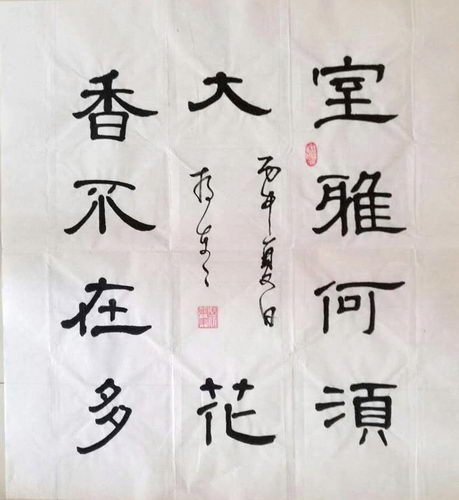 室雅何須
大花
香不在多
丙申夏日